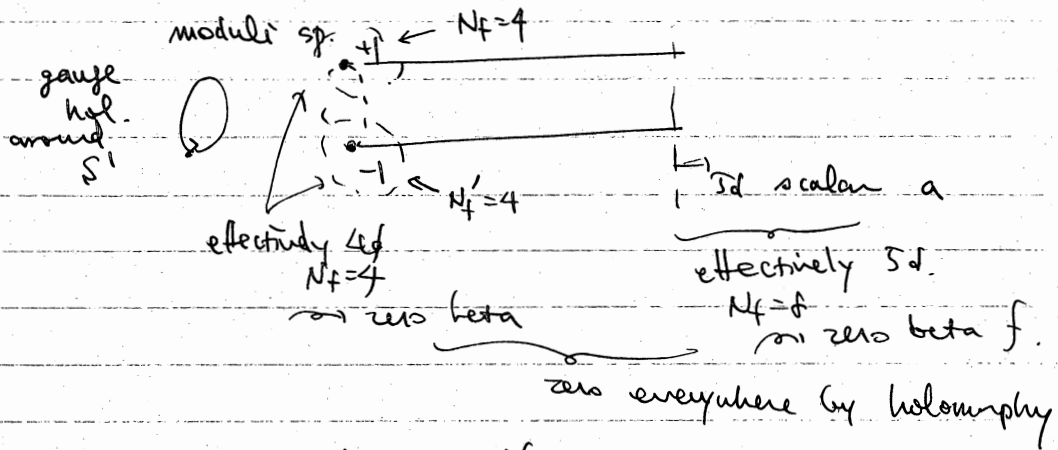 moduli sp. +1 ← Nf=4
gauge
hol.
around
S¹
-1
N'f=4
5d scalar a
effectively 4d
Nf=4
⇝ zero beta
effectively 5d.
Nf=8
⇝ zero beta f.
zero everywhere by holomorphy